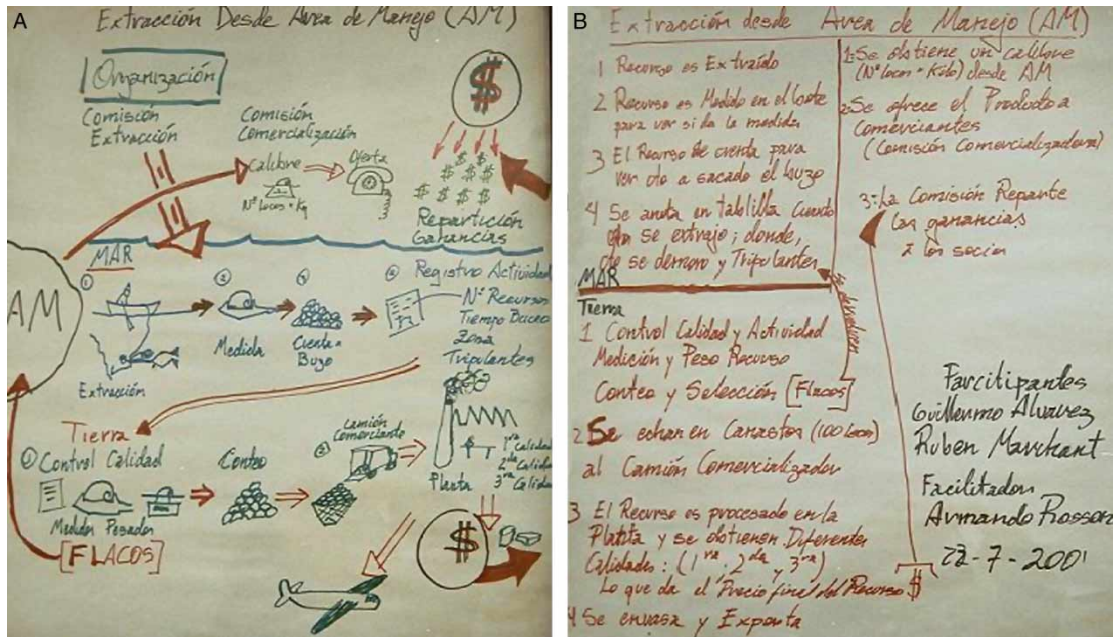 A
Extracción Desde Area de Manejo (AM)
Organización
Comisión
Extracción
Comisión
Comercialización
Calibre
Nº Locos = Kg
Oferta
$
$ $
$ $ $
$ $ $
Repartición
Ganancias
AM
MAR
1
Extracción
2
Medida
3
Cuenta a
Buzo
4
Registro Actividad
Nº Recursos
Tiempo Buceo
Zona
Tripulantes
Tierra
1 Control Calidad
Medidos Pesados
[FLACOS]
Conteo
2
Camión
Comerciante
Planta
$
1ra Calidad
2da Calidad
3ra Calidad
$
B
Extracción desde Area de Manejo (AM)
1 Recurso es Extraído
2 Recurso es Medido en el bote
para ver si da la medida
3 El Recurso se cuenta para
ver cto a sacado el buzo
4 Se anota en tablilla cuanto
se extrajo; donde,
cto se demoro y Tripulantes
MAR
Tierra
1 Control Calidad y Actividad
Medición y Peso Recurso
Conteo y Selección [Flacos]
se devuelven
2 Se echan en Canastos (100 Locos)
al Camión Comercializador
3 El Recurso es procesado en la
Planta y se obtienen Diferentes
Calidades: (1ra, 2da y 3ra)
Lo que da el Precio final del Recurso $
4 Se envasa y Exporta
1- Se obtiene un calibre
(Nº locos = Kilo) desde AM
2- Se ofrece el Producto a
Comerciantes
(Comisión Comercializadora)
3- La Comisión Reparte
las ganancias
a los socios
Participantes
Guillermo Alvarez
Ruben Marchant
Facilitador
Armando Rosson
23-7-2001